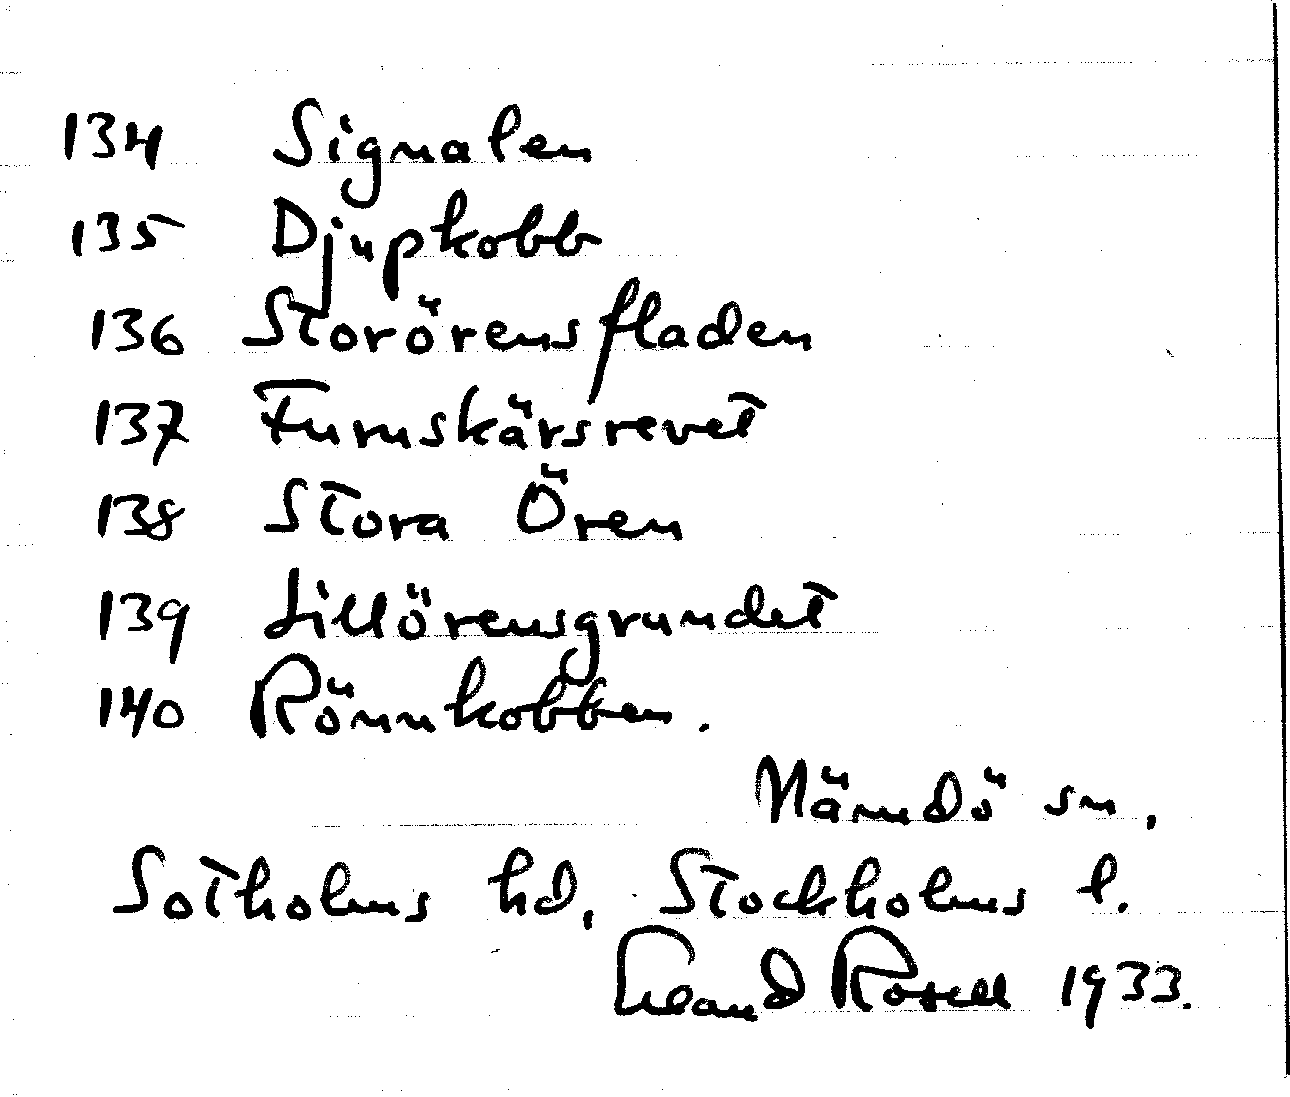 134 Signalen
135 Djupkobb
136 Storörensfladen
137 Furuskärsrevet
138 Stora Ören
139 Lillörensgrundet
140 Rönnkobben.
Nämdö sn,
Sotholms hd, Stockholms l.
Rosell 1933.